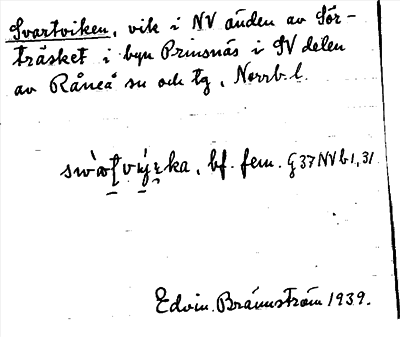 Svartviken, vik i NV änden av Sör-
träsket i byn Prinsnäs i SV delen
av Råneå sn och tg, Norrb. l.
bf. fem. G 37 NV b 1, 31
Edvin Brännström 1939.